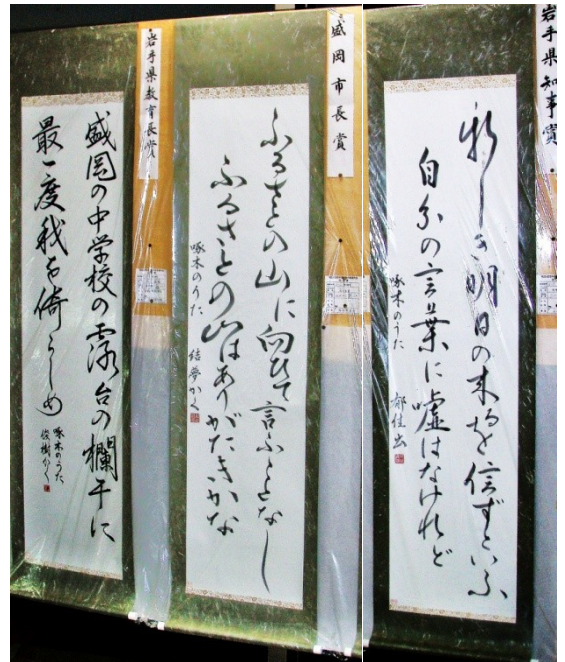 岩手県知事賞
新しき明日の来るを信ずといふ
自分の言葉に嘘はなけれど
啄木のうた 郁佳
盛岡市長賞
ふるさとの山に向ひて言ふことなし
ふるさとの山はありがたきかな
啄木のうた 結夢かく
岩手県教育長賞
盛岡の中学校の露台の欄干に
最一度我を倚らしめ
啄木のうた
俊樹かく